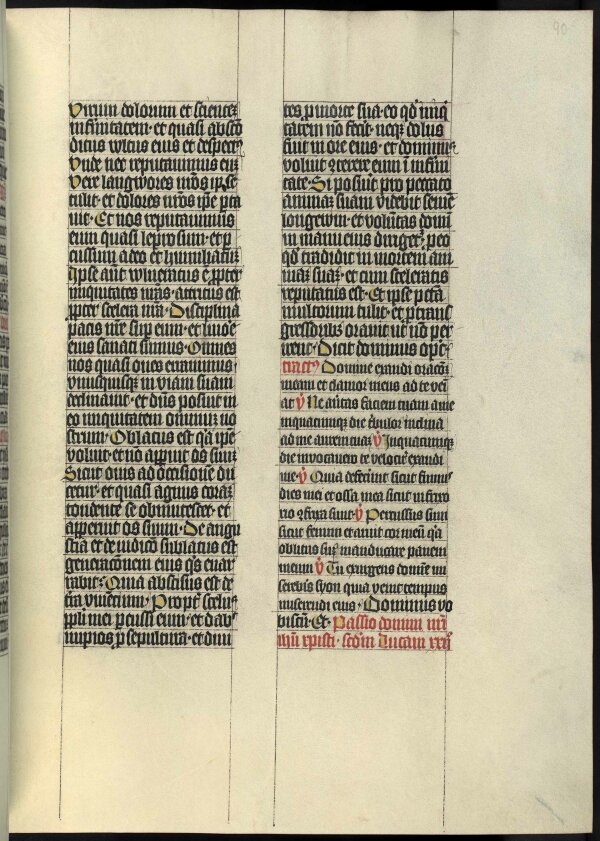 90
Virum dolorum et scientez
infirmitatem · et quasi absco
ditus vultus eius et despect9
Unde nec reputauimus eū
Vere langwores nr̄os ip̄e
tulit · et dolores nr̄os ip̄e por
uit · Et nos reputauimus
eum quasi leprosum · et p
cussum a deo et humiliatū·
Ip̄se aūt vulneratus ē propter
iniquitates nr̄as · attritus est
propter scelera nr̄a · Disciplina
pacis nr̄e sup eum · et liuore
eius sanati sumus · Omnes
nos quasi oues errauimus ·
vnusquisqꝫ in viam suam
declinauit · et dn̄s posuit in
eo iniquitatem omnium no
strum · Oblatus est qꝛ ip̄e
voluit · et nō apperuit os suū
Sicut ouis ad occisionē du
cetur · et quasi agnus coram
tondente se obmutescet · et
apperuit os suum · De angu
stia et de iudicō sublatus est
generacionem eius qͥs enar
rabit · Quia abscisus est de
terra viuencium · Propter scelus
ppli mei percussi eum · et dab
impios pro sepultura · et diui
tes pro morte sua · eo qd̄ iniqͥ
tatem nō fecit · neqꝫ dolus
fuit in ore eius · et dominus
voluit ꝯterere eum ī infirmi
tate · Si posuit pro peccato
animam suam videbit semē
longewum · et voluntas domī
in manu eius dirigetur · pro eo
qd̄ tradidit in mortem ani
mam suam · et cum sceleratis
reputatus est · Et ip̄se pctā
multorum tulit · et pro trans
gressoribus orauit vt nō per
irent · Dicit dominus omp̄s
tractus Domine exaudi oracōem
meam et clamor meus ad te veni
at V Ne auertas faciem tuam a me
in quacumqꝫ die tribulor inclina
ad me aurem tuam V In quacumqꝫ
die inuocauero te velociter exaudi
me · V Quia defecerunt sicut fumus
dies mei et ossa mea sicut in frixo
rio ꝯfrixa sunt · V Percussus sum
sicut fenum et aruit cor meū qꝛ
oblitus sum manducare panem
meum V Tu exurgens domine mi
sereberis syon quia venit tempus
miserendi eius · Dominus vo
biscū · Et · Passio domini nr̄i
ihū xpisti · scdm̄ Lucam xxij